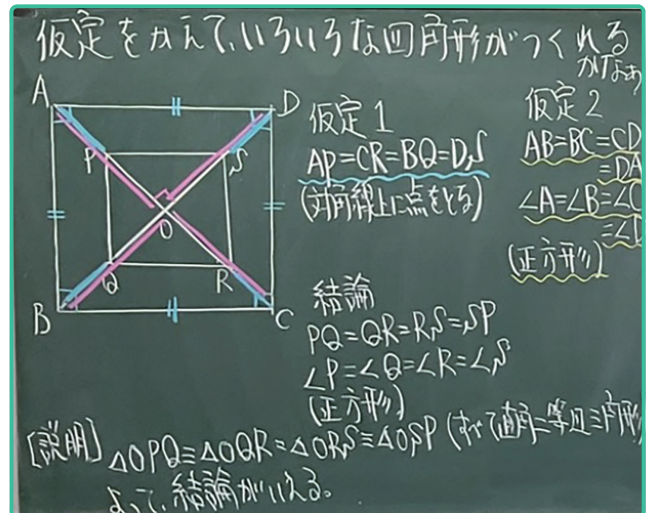 仮定をかえて、いろいろな四角形がつくれる
かなぁ
A
D
P
S
O
Q
R
B
C
仮定1
AP=CR=BQ=DS
(対角線上に点をとる)
仮定2
AB=BC=CD
=DA
∠A=∠B=∠C
=∠D
(正方形)
結論
PQ=QR=RS=SP
∠P=∠Q=∠R=∠S
(正方形)
[説明] △OPQ≡△OQR≡△ORS≡△OSP (すべて直角二等辺三角形
よって、結論がいえる。